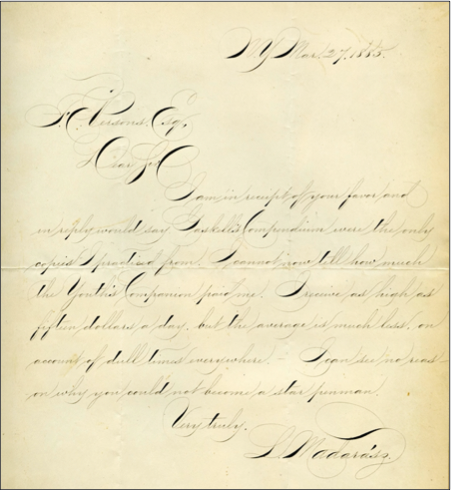 N.Y. Mar. 27. 1885.
F. C. Persons. Esq,
Dear Sir
I am in receipt of your favor and
in reply would say Gaskell's Compendium were the only
copies I practised from. I cannot now tell how much
the Youth's Companion paid me. I receive as high as
fifteen dollars a day, but the average is much less, on
account of dull times everywhere. I can see no reas-
on why you could not become a star penman.
Very truly.
L. Madarász.